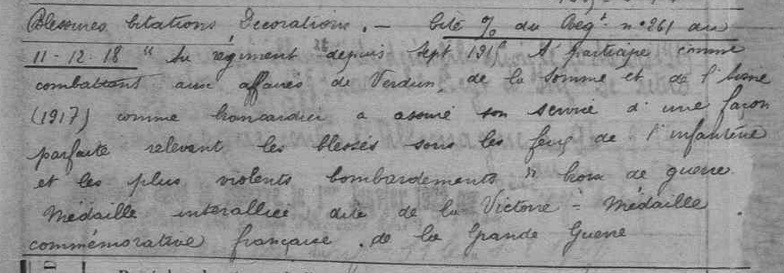 Blessures Citations Décorations. — Cité % du Régt n° 261 du
11-12-18 " Au régiment depuis Sept 1916 A participé comme
combattant aux affaires de Verdun, de la Somme et de l'Aisne
(1917) comme brancardier a assuré son service d'une façon
parfaite relevant les blessés sous les feux de l'infanterie
et les plus violents bombardements " Croix de guerre.
Médaille interalliée dite de la Victoire = Médaille
commémorative française de la Grande Guerre